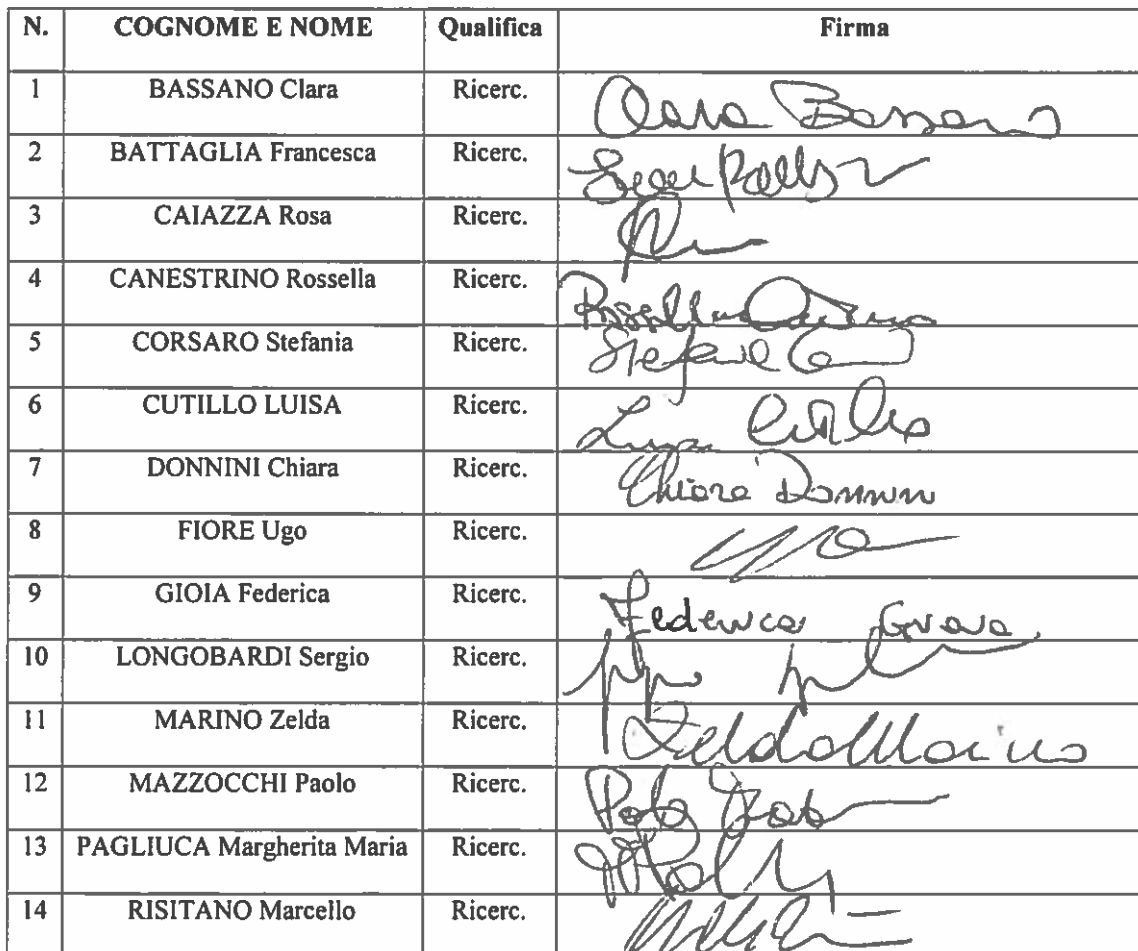 N. COGNOME E NOME Qualifica Firma
1 BASSANO Clara Ricerc. Clara Bassano
2 BATTAGLIA Francesca Ricerc.
3 CAIAZZA Rosa Ricerc.
4 CANESTRINO Rossella Ricerc. Rossella
5 CORSARO Stefania Ricerc. Stefania
6 CUTILLO LUISA Ricerc. Luisa Cutillo
7 DONNINI Chiara Ricerc. Chiara Donnini
8 FIORE Ugo Ricerc.
9 GIOIA Federica Ricerc. Federica Gioia
10 LONGOBARDI Sergio Ricerc.
11 MARINO Zelda Ricerc. Zelda Marino
12 MAZZOCCHI Paolo Ricerc. Paolo
13 PAGLIUCA Margherita Maria Ricerc.
14 RISITANO Marcello Ricerc.